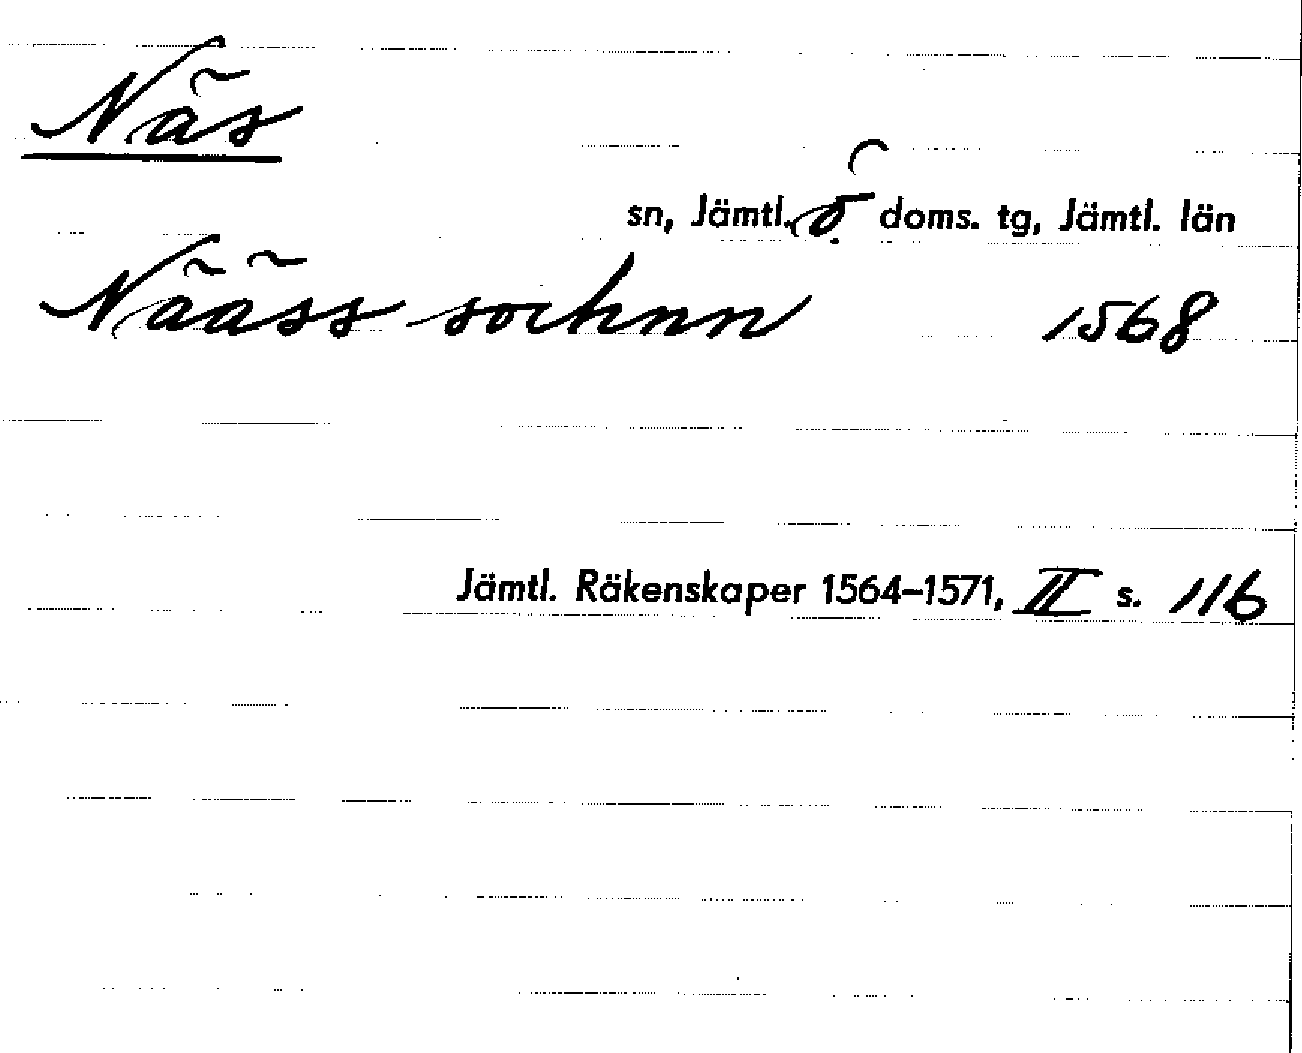 Näs
sn, Jämtl. ö doms. tg, Jämtl. län
Nääss sochnn 1568
Jämtl. Räkenskaper 1564–1571, II s. 116